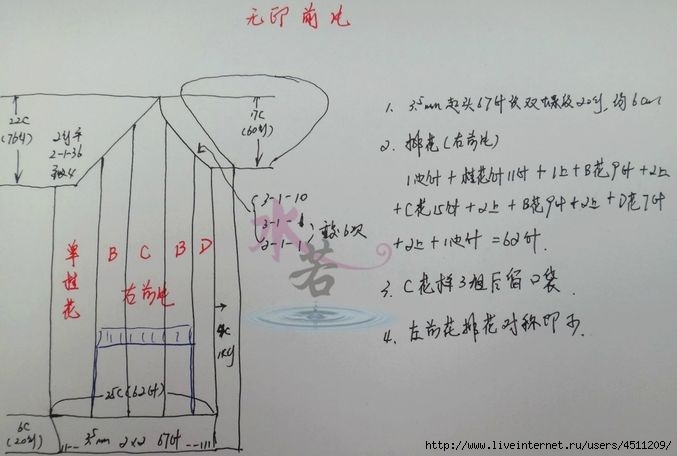 无印前片
22C
(76行)
2行平
2-1-36
平收4
17C
(60行)
3-1-10
2-1-1
重复6次
单桂花
B C B D
右前片
25C(62针)
6C
(20行)
3.5mm 2x2 67针
1. 3.5mm起头67针织双螺纹20行,约6cm
2. 排花(右前片)
1边针+桂花针11针+1上+B花9针+2上
+C花15针+2上+B花9针+2上+D花7针
+2上+1边针=62针.
3. C花样3组后留口袋.
4. 左前花排花对称即可
水若
http://www.liveinternet.ru/users/4511209/